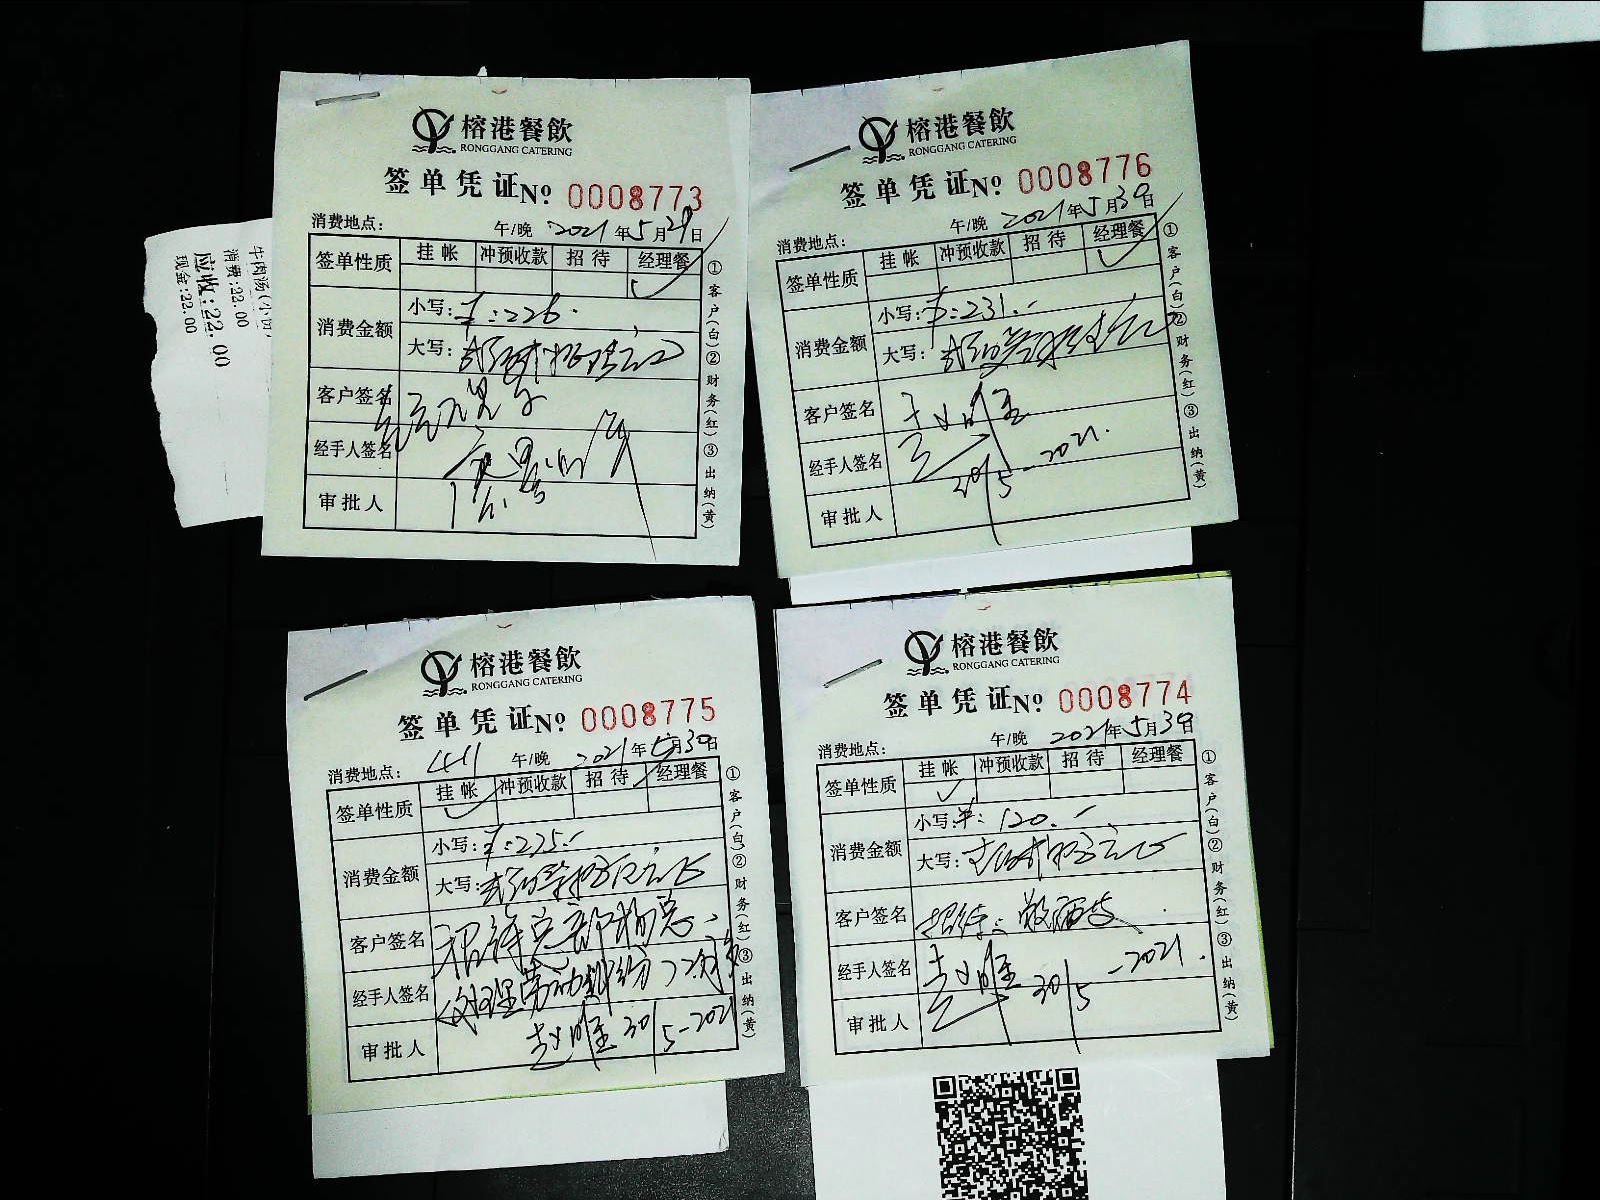 榕港餐飲
RONGGANG CATERING
签单凭证№ 0008773
消费地点： 午/晚 2021年5月29日
签单性质 挂帐 冲预收款 招待 经理餐
消费金额 小写：¥:226.
大写：
客户签名
经手人签名
审批人
①客户(白)②财务(红)③出纳(黄)
牛肉汤(小份)
消费:22.00
应收:22.00
现金:22.00
榕港餐飲
RONGGANG CATERING
签单凭证№ 0008776
消费地点： 午/晚 2021年5月30日
签单性质 挂帐 冲预收款 招待 经理餐
消费金额 小写：¥:231.-
大写：
客户签名
经手人签名 30/5-2021.
审批人
①客户(白)②财务(红)③出纳(黄)
榕港餐飲
RONGGANG CATERING
签单凭证№ 0008775
消费地点： 午/晚 2021年5月30日
签单性质 挂帐 冲预收款 招待 经理餐
消费金额 小写：¥:235.-
大写：
客户签名
经手人签名
审批人 30/5-2021
①客户(白)②财务(红)③出纳(黄)
榕港餐飲
RONGGANG CATERING
签单凭证№ 0008774
消费地点： 午/晚 2021年5月30日
签单性质 挂帐 冲预收款 招待 经理餐
消费金额 小写：¥:120.-
大写：
客户签名
经手人签名 30/5-2021.
审批人
①客户(白)②财务(红)③出纳(黄)